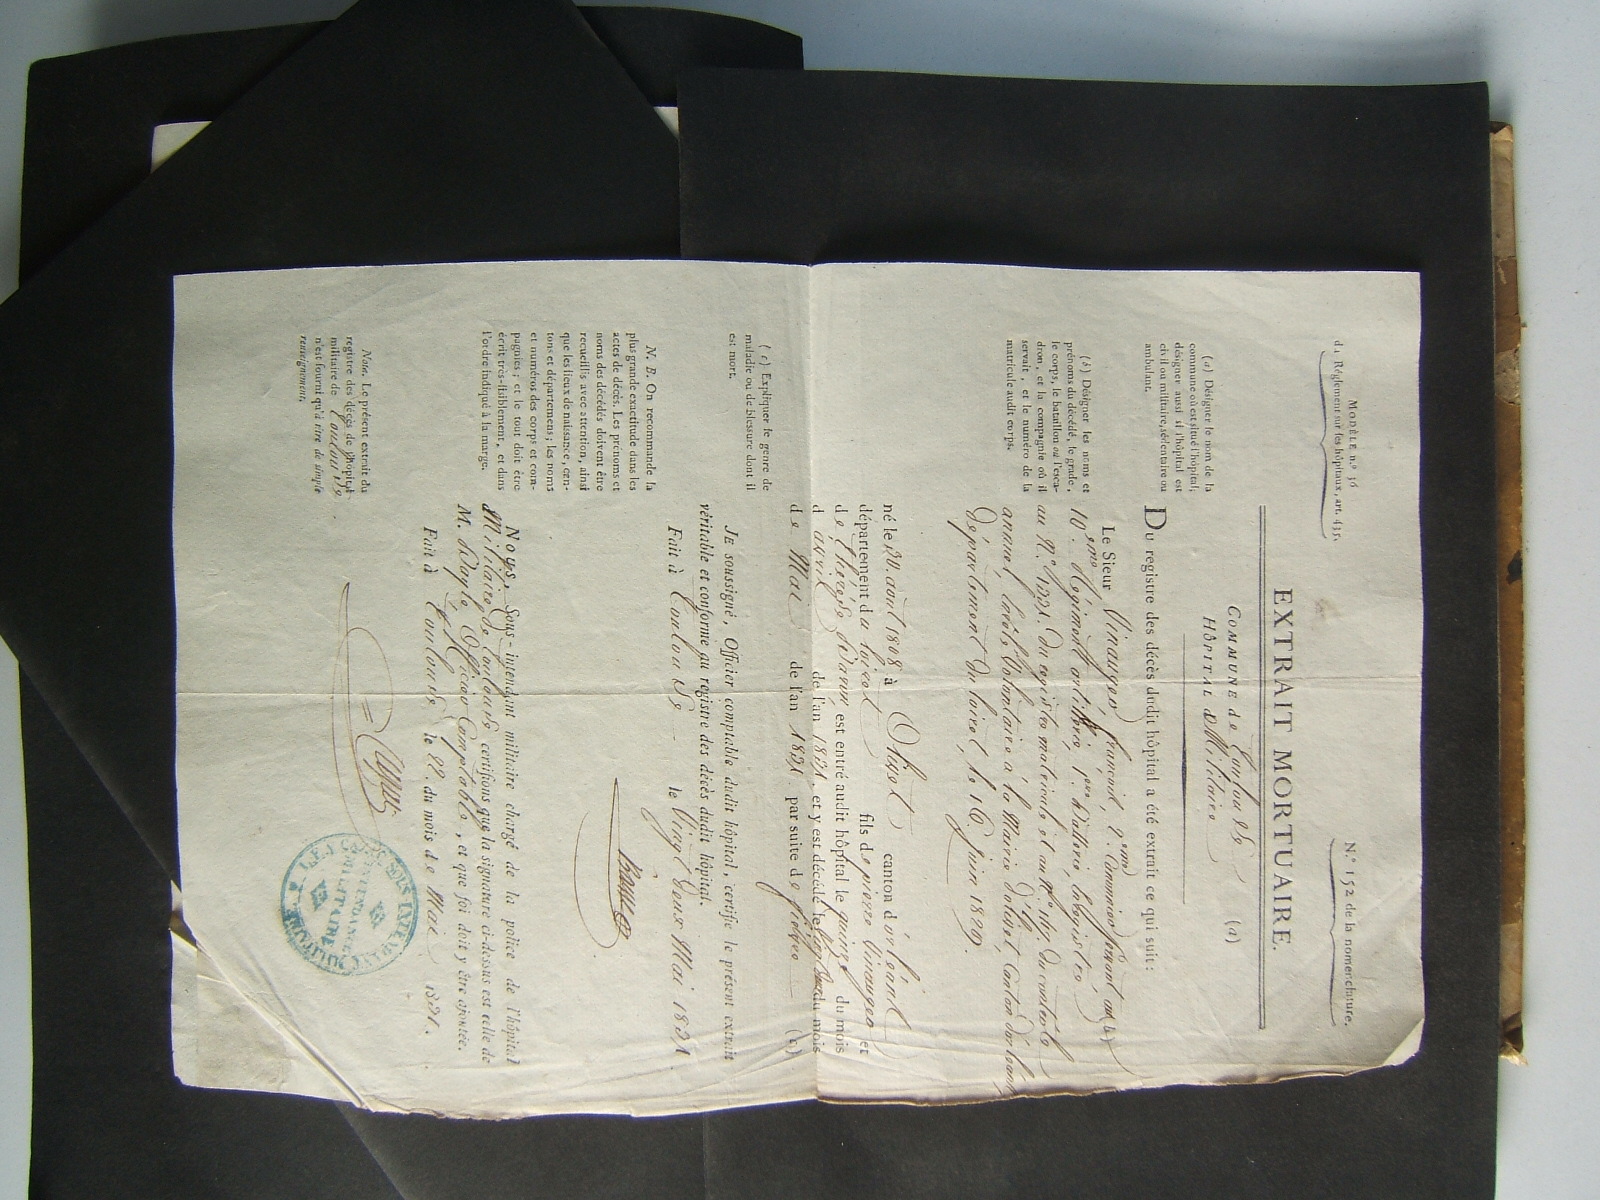 MODÈLE n.º 36
du Réglement sur les hôpitaux, art. 435.
N.º 152 de la nomenclature.
EXTRAIT MORTUAIRE.
COMMUNE de Toulouse (a)
HÔPITAL Militaire
(a) Désigner le nom de la
commune où est situé l'hôpital;
désigner aussi si l'hôpital est
civil ou militaire, sédentaire ou
ambulant.
Du registre des décès dudit hôpital a été extrait ce qui suit:
(b) Désigner les noms et
prénoms du décédé, le grade,
le corps, le bataillon ou l'esca-
dron, et la compagnie où il
servait, et le numéro de la
matricule audit corps.
Le Sieur françois, 2eme (b)
10.eme Régiment
au N.º 1331. Du registre matricule et au Du contrôle
annuel, Volontaire à la Mairie Canton
Département Du loiret, le 16 juin 1829.
né le 20. aout 1808 à canton d'orléans
département du loiret fils de pierre et
de est entré audit hôpital le quinze du mois
d'avril de l'an 1831, et y est décédé le du mois
de Mai de l'an 1831 par suite de fièvre (c)
(c) Expliquer le genre de
maladie ou de blessure dont il
est mort.
JE soussigné, Officier comptable dudit hôpital, certifie le présent extrait
véritable et conforme au registre des décès dudit hôpital.
Fait à Toulouse le Vingt Deux Mai 1831
N. B. On recommande la
plus grande exactitude dans les
actes de décès. Les prénoms et
noms des décédés doivent être
recueillis avec attention, ainsi
que les lieux de naissance, can-
tons et départemens; les noms
et numéros des corps et com-
pagnies; et le tout doit être
écrit très-lisiblement, et dans
l'ordre indiqué à la marge.
Nous, Sous-intendant militaire chargé de la police de l'hôpital
Militaire de Toulouse certifions que la signature ci-dessus est celle de
M. Officier Comptable, et que foi doit y être ajoutée.
Fait à Toulouse le 22. du mois de Mai 1831.
Note. Le présent extrait du
registre des décès de l'hôpital
militaire de Toulouse
n'est fourni qu'à titre de simple
renseignement.
INTENDANCE
MILITAIRE